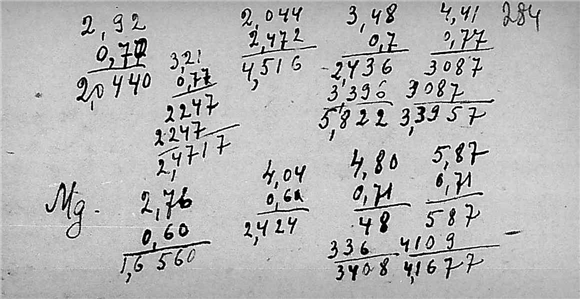 2,92
0,70
2,0440
3,21
0,77
2247
2247
2,4717
2,044
2,472
4,516
3,48
0,7
2,436
3,396
5,822
4,41
0,77
3087
3087
3,3957
284
Mg.
2,76
0,60
1,6560
4,04
0,60
2,424
4,80
0,71
48
336
3408
5,87
0,71
587
4109
4,1677